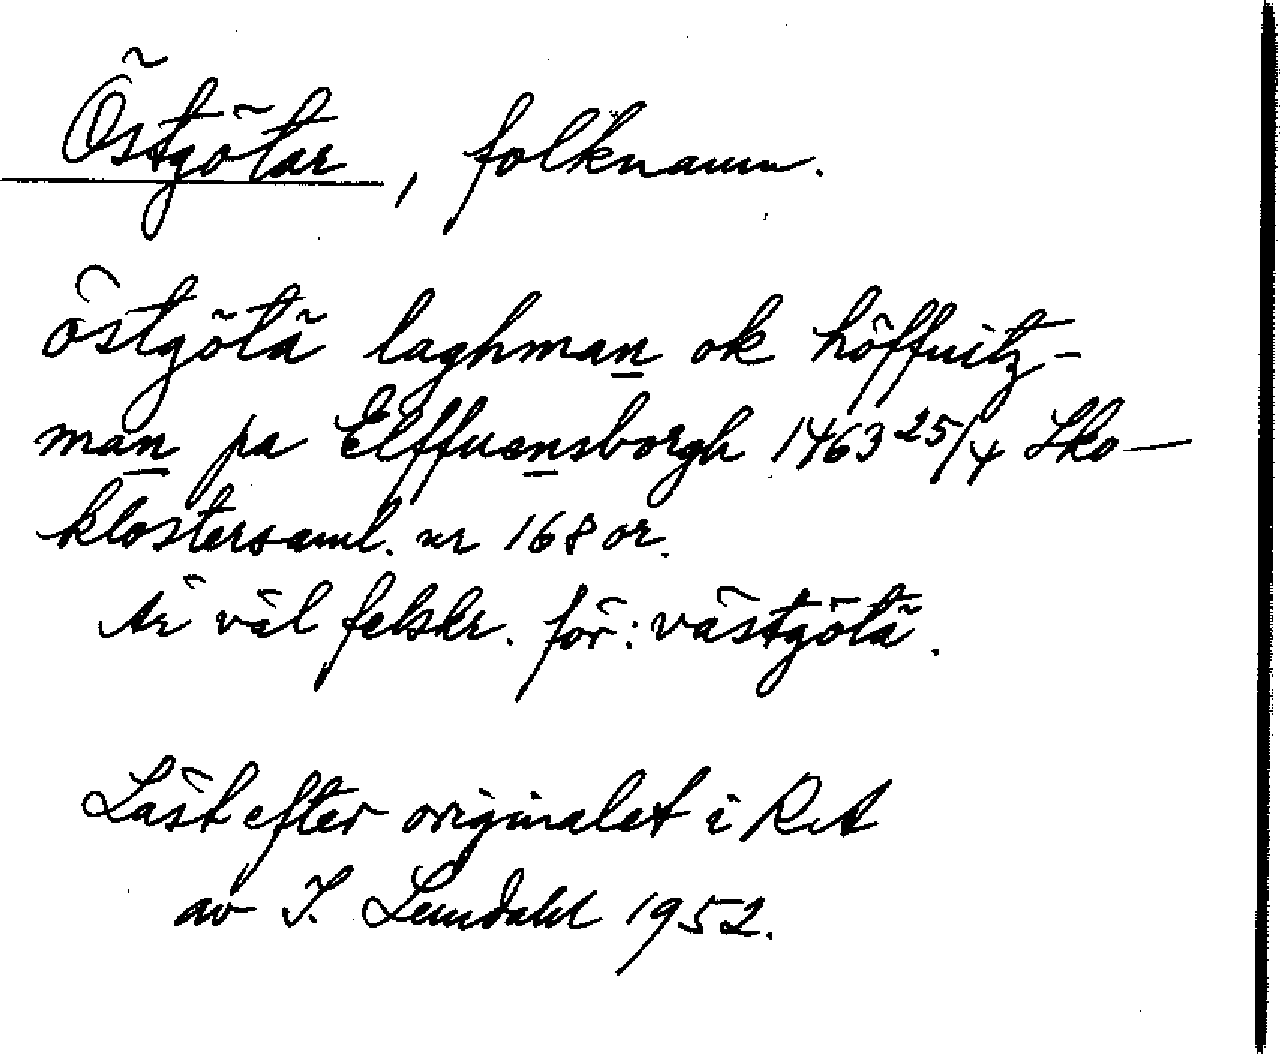 Östgötar, folknamn.
östgötä laghman ok höffuitz-
man pa Elffuensborgh 1463 25/4 Sko-
klostersaml. nr 168 or.
Är väl felskr. för: västgötä.
Läst efter originalet i RA
av I. Lundahl 1952.